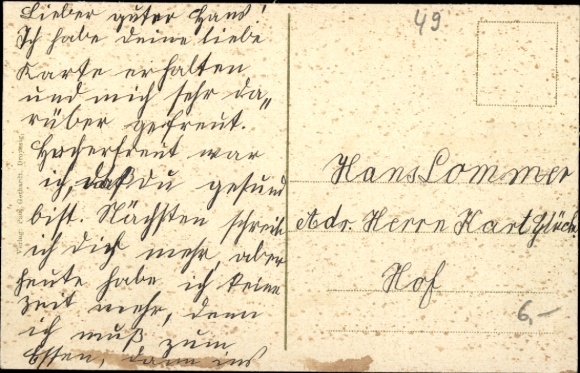 Lieber guter Hans!
Ich habe deine liebe
Karte erhalten
und mich sehr da„
rüber gefreut.
Hocherfreut war
ich, daß du gesund
bist. Nächsten schreib
ich dich mehr, aber
heute habe ich keine
Zeit mehr, denn
ich muß zum
Essen, dann ins
Verlag: Gerhardt,
49
Hans Lommer
Adr. Herrn Kart
Hof
6.—